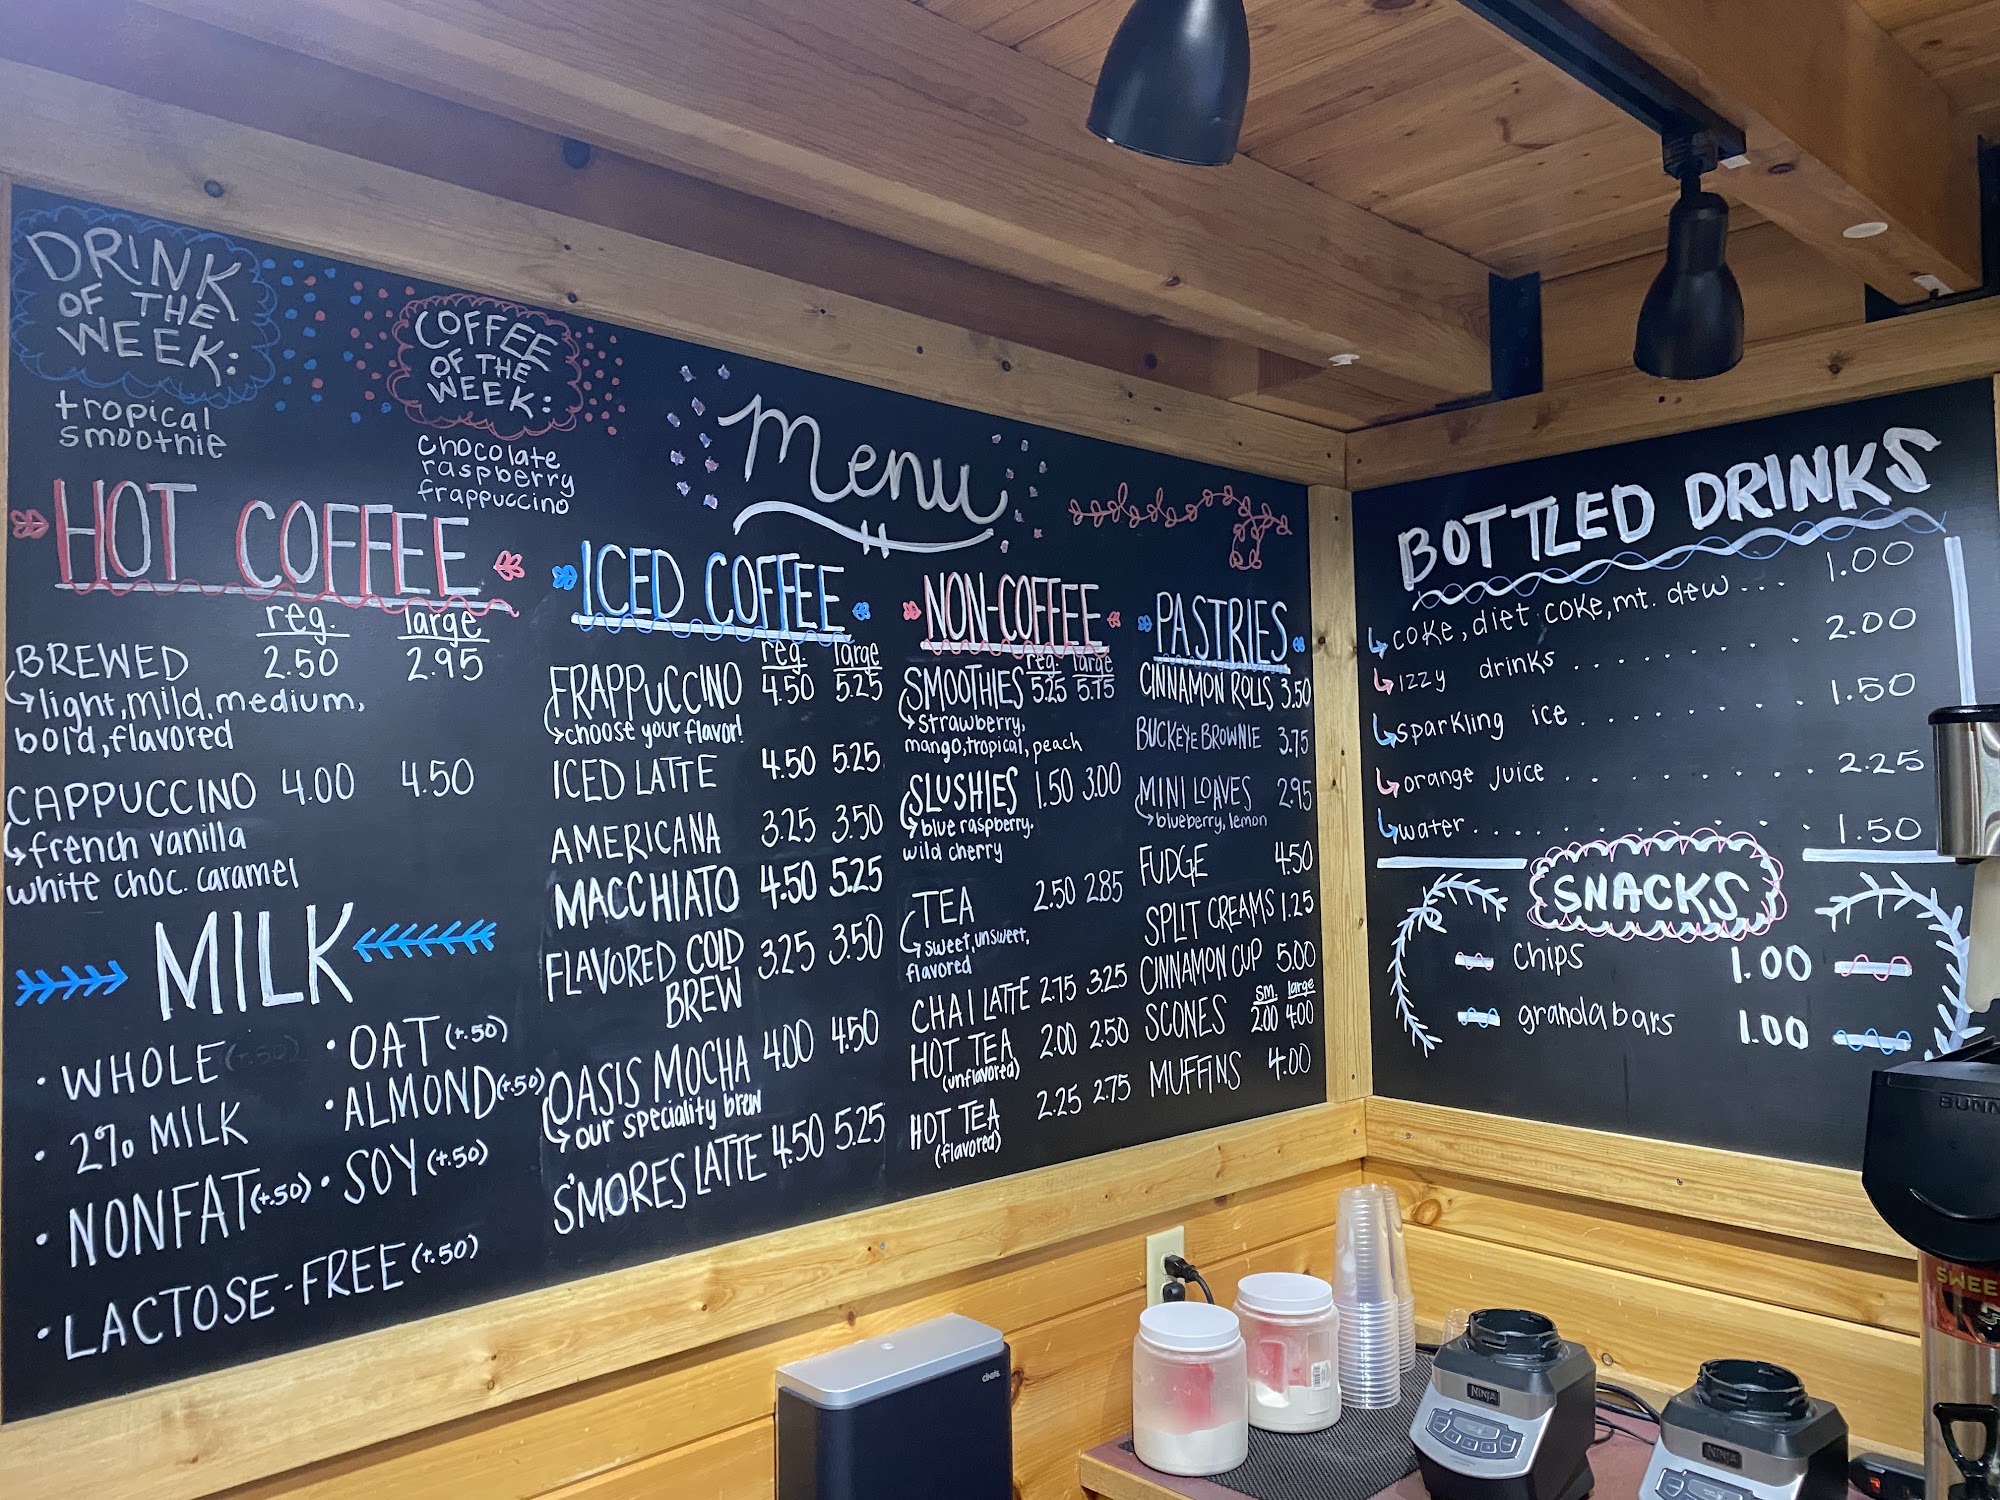 DRINK
OF THE
WEEK:
tropical
smoothie
COFFEE
OF THE
WEEK:
chocolate
raspberry
frappuccino
Menu
HOT COFFEE
reg. large
BREWED 2.50 2.95
light, mild, medium,
bold, flavored
CAPPUCCINO 4.00 4.50
french vanilla
white choc. caramel
MILK
• WHOLE (+.50)
• 2% MILK
• NONFAT (+.50)
• LACTOSE-FREE (+.50)
• OAT (+.50)
• ALMOND (+.50)
• SOY (+.50)
ICED COFFEE
reg large
FRAPPUCCINO 4.50 5.25
choose your flavor!
ICED LATTE 4.50 5.25
AMERICANA 3.25 3.50
MACCHIATO 4.50 5.25
FLAVORED COLD
BREW 3.25 3.50
OASIS MOCHA 4.00 4.50
our speciality brew
S'MORES LATTE 4.50 5.25
NON-COFFEE
reg. large
SMOOTHIES 5.25 5.75
strawberry,
mango, tropical, peach
SLUSHIES 1.50 3.00
blue raspberry,
wild cherry
TEA 2.50 2.85
sweet, unsweet,
flavored
CHAI LATTE 2.75 3.25
HOT TEA 2.00 2.50
(unflavored)
HOT TEA 2.25 2.75
(flavored)
PASTRIES
CINNAMON ROLLS 3.50
BUCKEYE BROWNIE 3.75
MINI LOAVES 2.95
blueberry, lemon
FUDGE 4.50
SPLIT CREAMS 1.25
CINNAMON CUP 5.00
sm. large
SCONES 2.00 4.00
MUFFINS 4.00
BOTTLED DRINKS
coke, diet coke, mt. dew... 1.00
izzy drinks ........ 2.00
sparkling ice ........ 1.50
orange juice ......... 2.25
water ............ 1.50
SNACKS
chips 1.00
granola bars 1.00
BUNN
SWEE
NINJA
NINJA